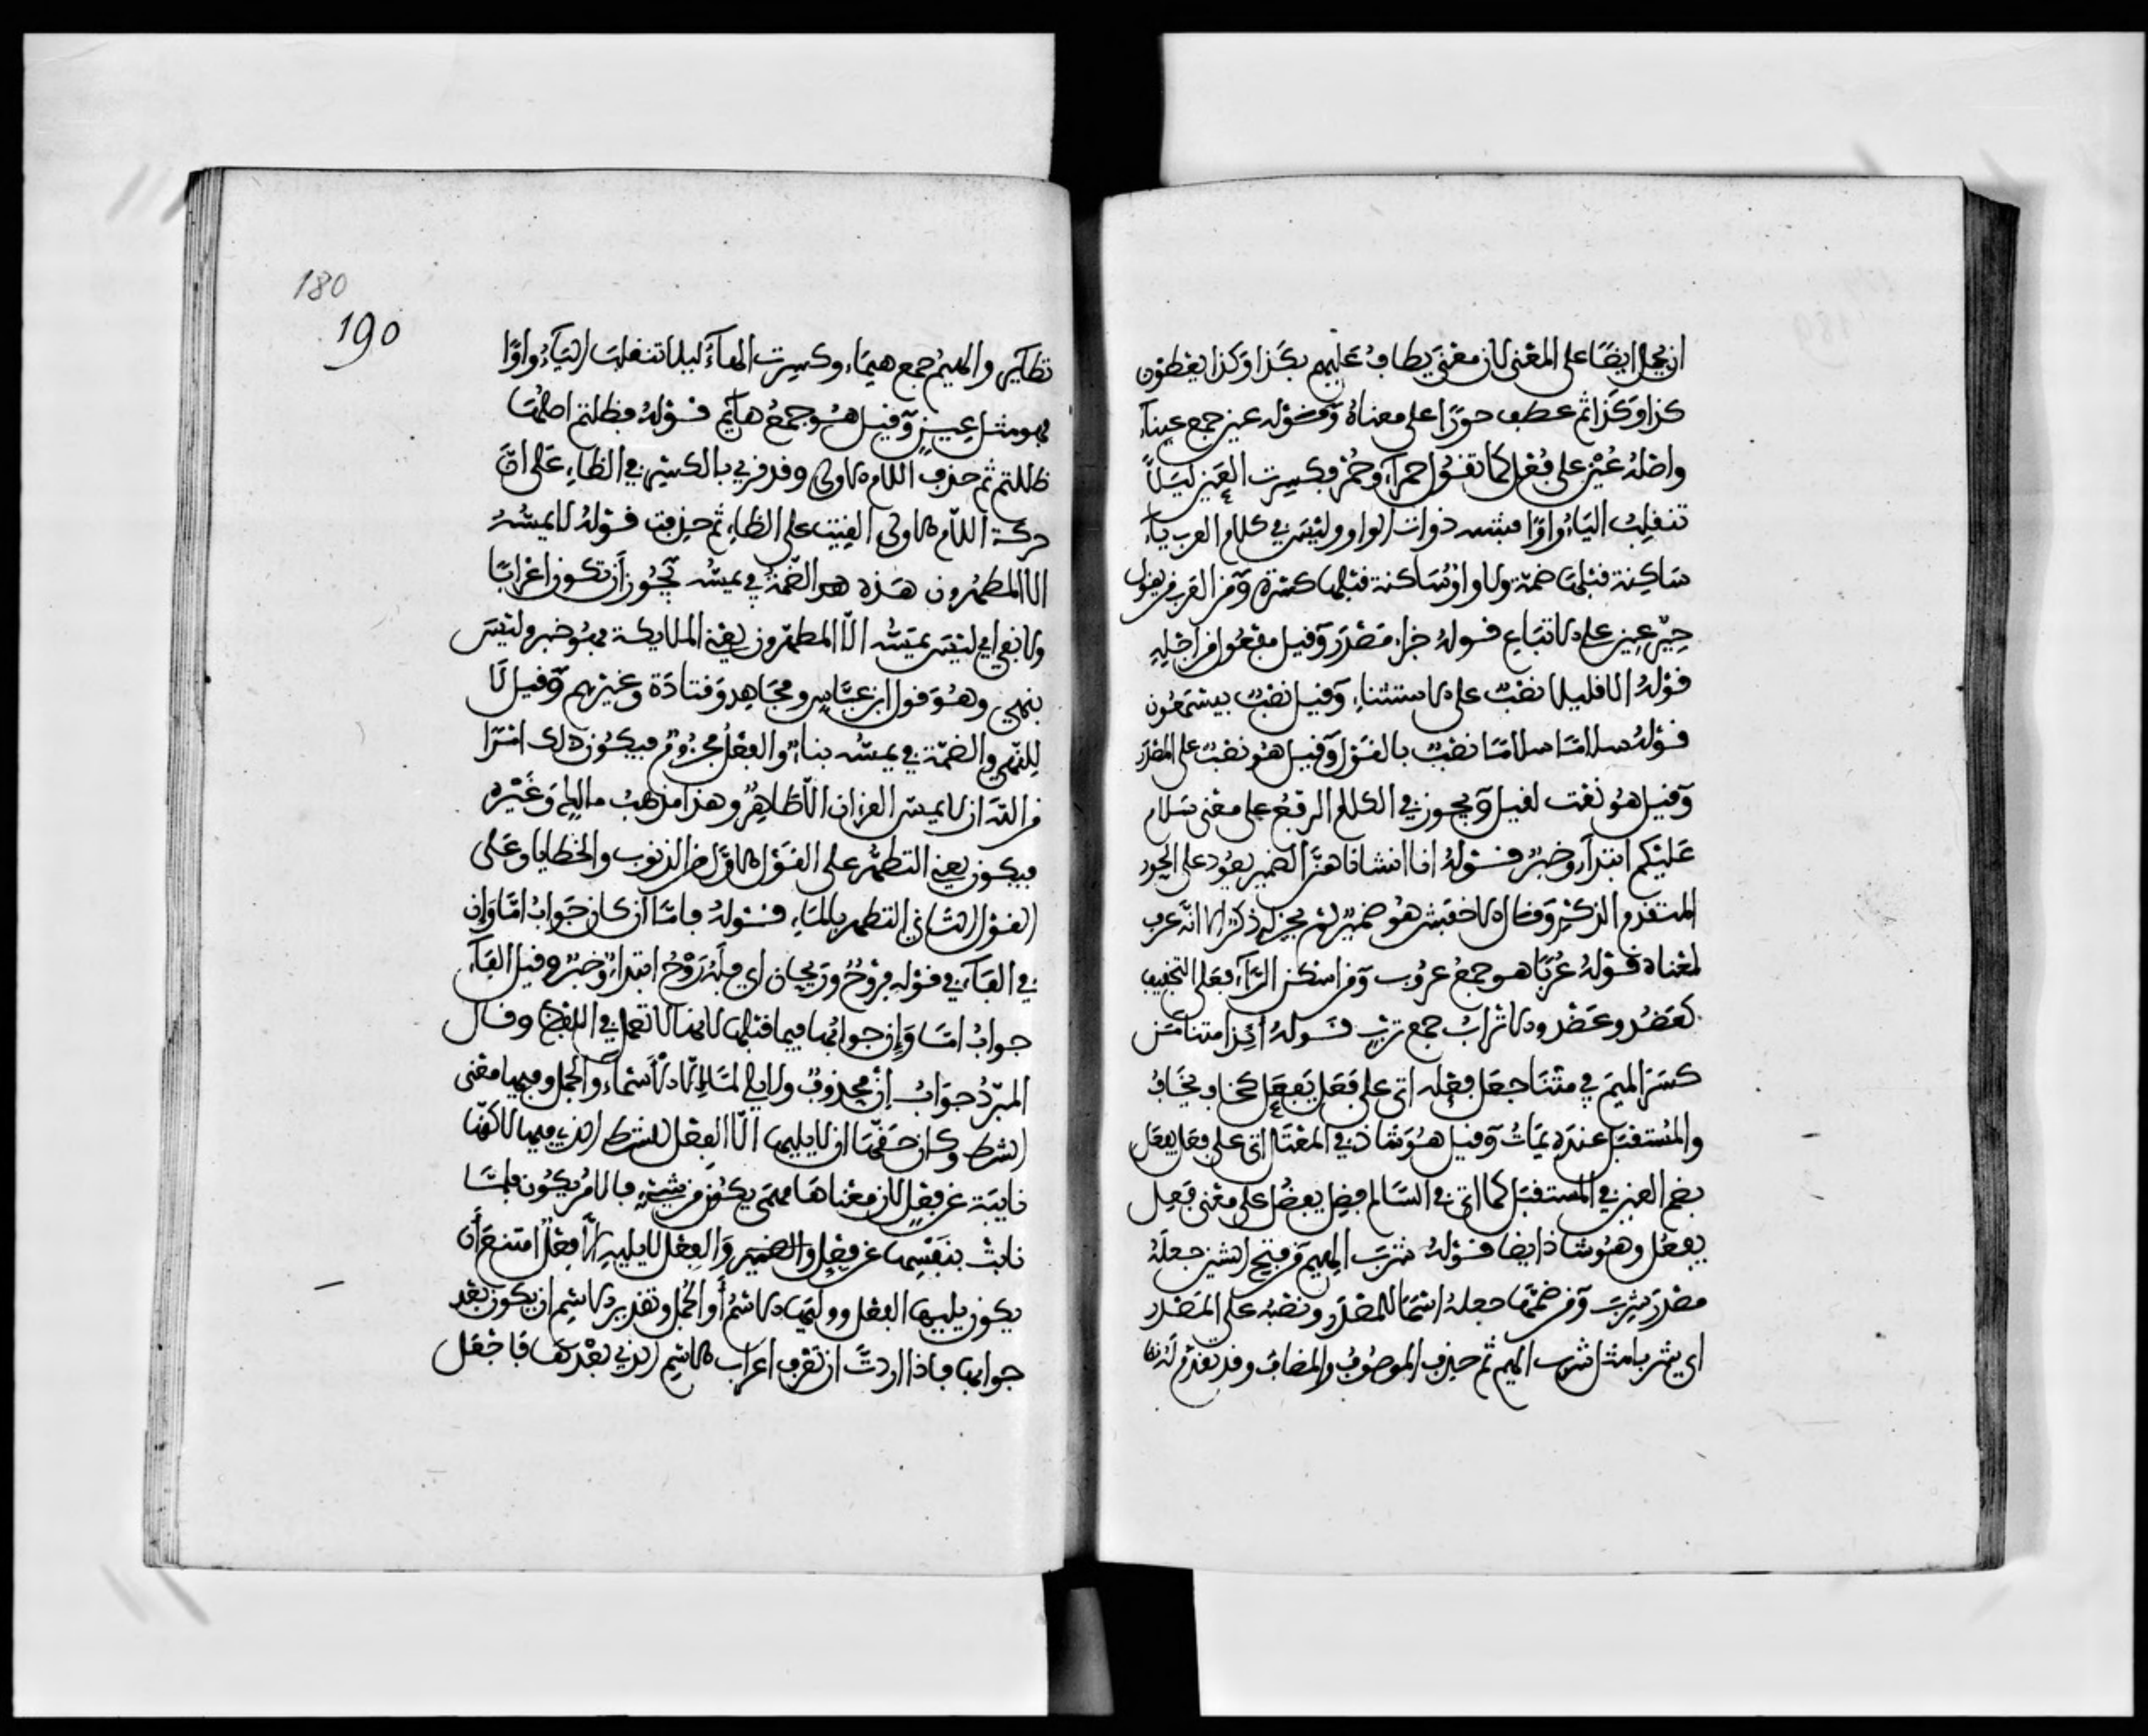 ان يحمل ايضا على المعنى لان معنى يطاف عليهم بكذا وكذا يعطون
كذا وكذا ثم عطف حورا على معناه وقوله عين جمع عيناء
واصله عين على فعل كما تقول حمراء وحمر وكسرت العين ليلا
تنقلب الياء واوا فتشبه ذوات الواو وليس في كلام العرب ياء
ساكنة قبلها ضمة ولا واو ساكنة قبلها كسرة ومن العرب من يقول
حير عين على الاتباع قوله جزاء مصدر وقيل مفعول من اجله
قوله الا قليلا نصب على الاستثناء وقيل نصب بيسمعون
قوله سلاما سلاما نصب بالقول وقيل هو نصب على المصدر
وقيل هو نعت لقيل ويجوز في الكلام الرفع على معنى سلام
عليكم ابتداء وخبر قوله انا انشاناهن الضمير يعود على الحور
المتقدم الذكر وقال الاخفش هو ضمير لم يجر له ذكر الا انه عرف
لمعناه قوله عربا هو جمع عروب ومن اسكن الراء فعلى التخفيف
كعضد وعضد والاتراب جمع ترب قوله ائذا متنا من
كسر الميم في متنا جعل فعله اتى على فعل يفعل كخاف يخاف
والمستقبل عنده يمات وقيل هو شاذ في المعتل اتى على فعل يفعل
بضم العين في المستقبل كما اتى في السالم فضل يفضل على معنى فعل
يفعل وهو شاذ ايضا قوله شرب الهيم من فتح الشين جعله
مصدر شرب ومن ضمها جعله اسما للمصدر ونصبه على المصدر
اي شربا مثل شرب الهيم ثم حذف الموصوف والمضاف وقد تقدم له
180
190
نظاير والهيم جمع هيماء وكسرت الهاء ليلا تنقلب الياء واوا
فهو مثل عين وقيل هو جمع هايم قوله فظلتم اصلها
ظللتم ثم حذف اللام الاولى وقد قري بالكسر في الظاء على ان
حركة اللام الاولى القيت على الظاء ثم حذفت قوله لا يمسه
الا المطهرون هذه هو الضمة في يمسه يجوز ان تكون اعرابا
ولا نفي اي ليس يمسه الا المطهرون يعني الملايكة فهو خبر وليس
بنهي وهو قول ابن عباس ومجاهد وقتادة وغيرهم وقيل لا
للنهي والضمة في يمسه بناء والفعل مجزوم فيكون ذلك امرا
من الله ان لا يمس القران الا طاهر وهذا مذهب مالك وغيره
فيكون يعني التطهر على القول الاول من الذنوب والخطايا وعلى
القول الثاني التطهر بالماء قوله فاما ان كان جواب اما وان
في الفاء في قوله فروح وريحان اي فله روح ابتداء وخبره وقيل الفاء
جواب اما وان جوابها فيما قبلها لانها لا تعمل في اللفظ وقال
المبرد جواب ان محذوف ولا يلي اما الا الاسماء والجمل وفيها معنى
الشرط وكان حقها ان لا يليها الا الفعل للشرط الذي فيها لاكنها
نايبة عن فعل لان معناها مهما يكن من شيء فالامر يكون فلما
نابت بنفسها عن فعل والضمير والفعل لا يليه الا فعل امتنع ان
يكون يليها الفعل ووليها الاسم او الجمل وتقدير الاسم ان يكون بعد
جوابها فاذا اردت ان تعرف اعراب الاسم الذي بعدها فاجعل